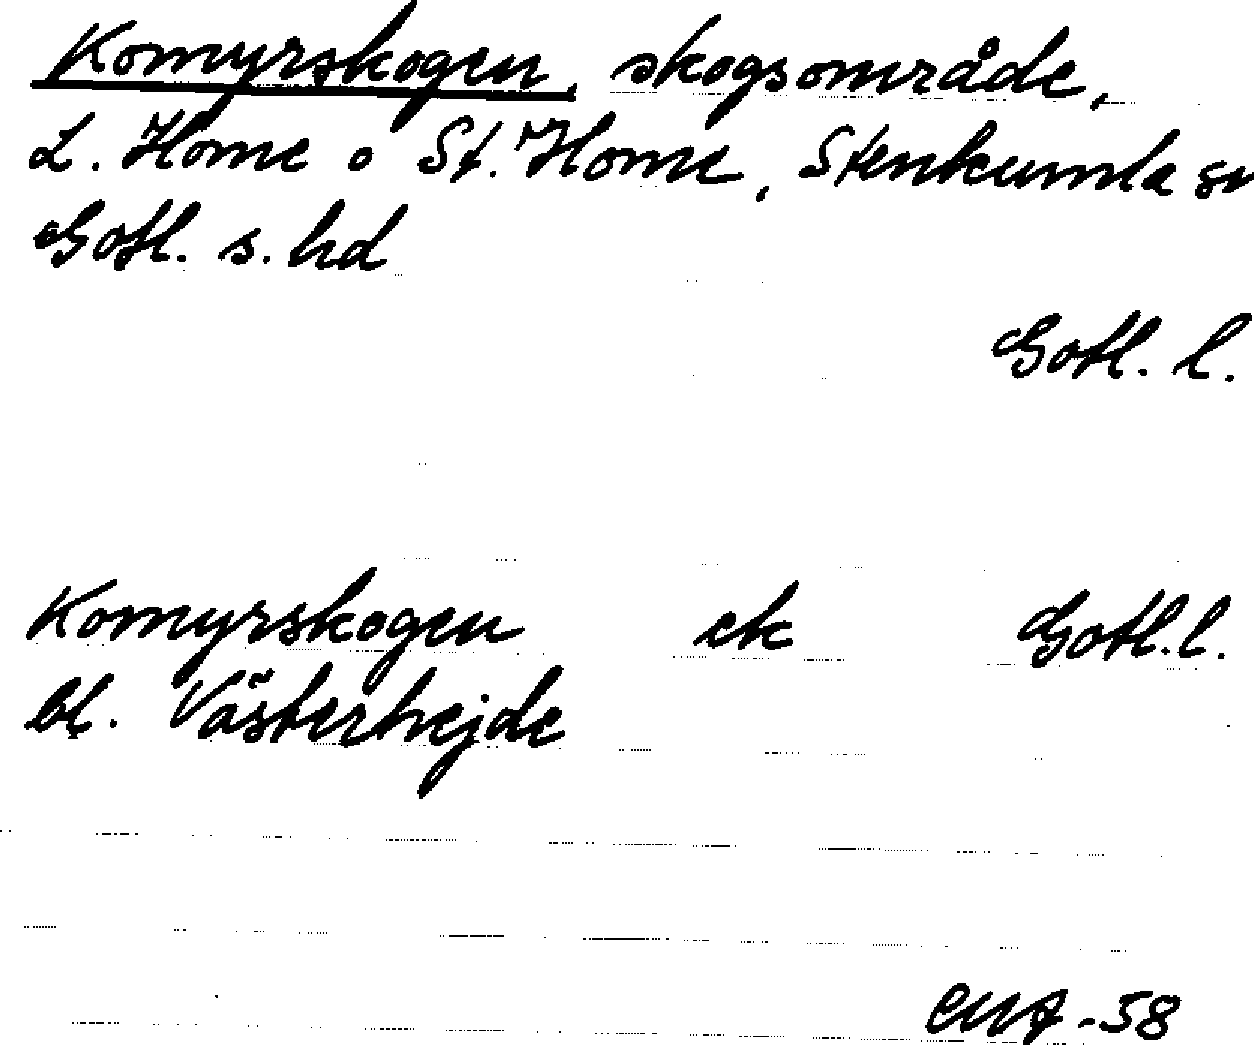 Komyrskogen, skogsområde,
L. Home o St. Home, Stenkumla sn
Gotl. s. hd
Gotl. l.
Komyrskogen ek Gotl. l.
bl. Västerhejde
-58